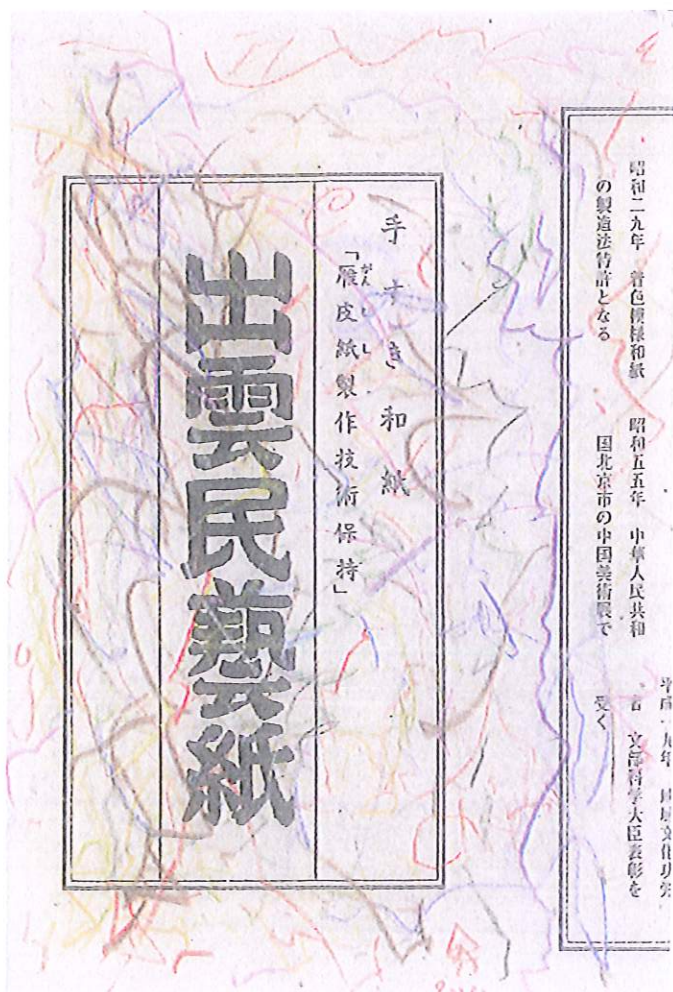 昭和二九年 着色模様和紙
の製造法特許となる
昭和五五年 中華人民共和
国北京市の中国美術展で
平成一九年 地域文化功労
者 文部科学大臣表彰を
受く
手すき和紙
「雁皮紙製作技術保持」
がんぴし
出雲民藝紙